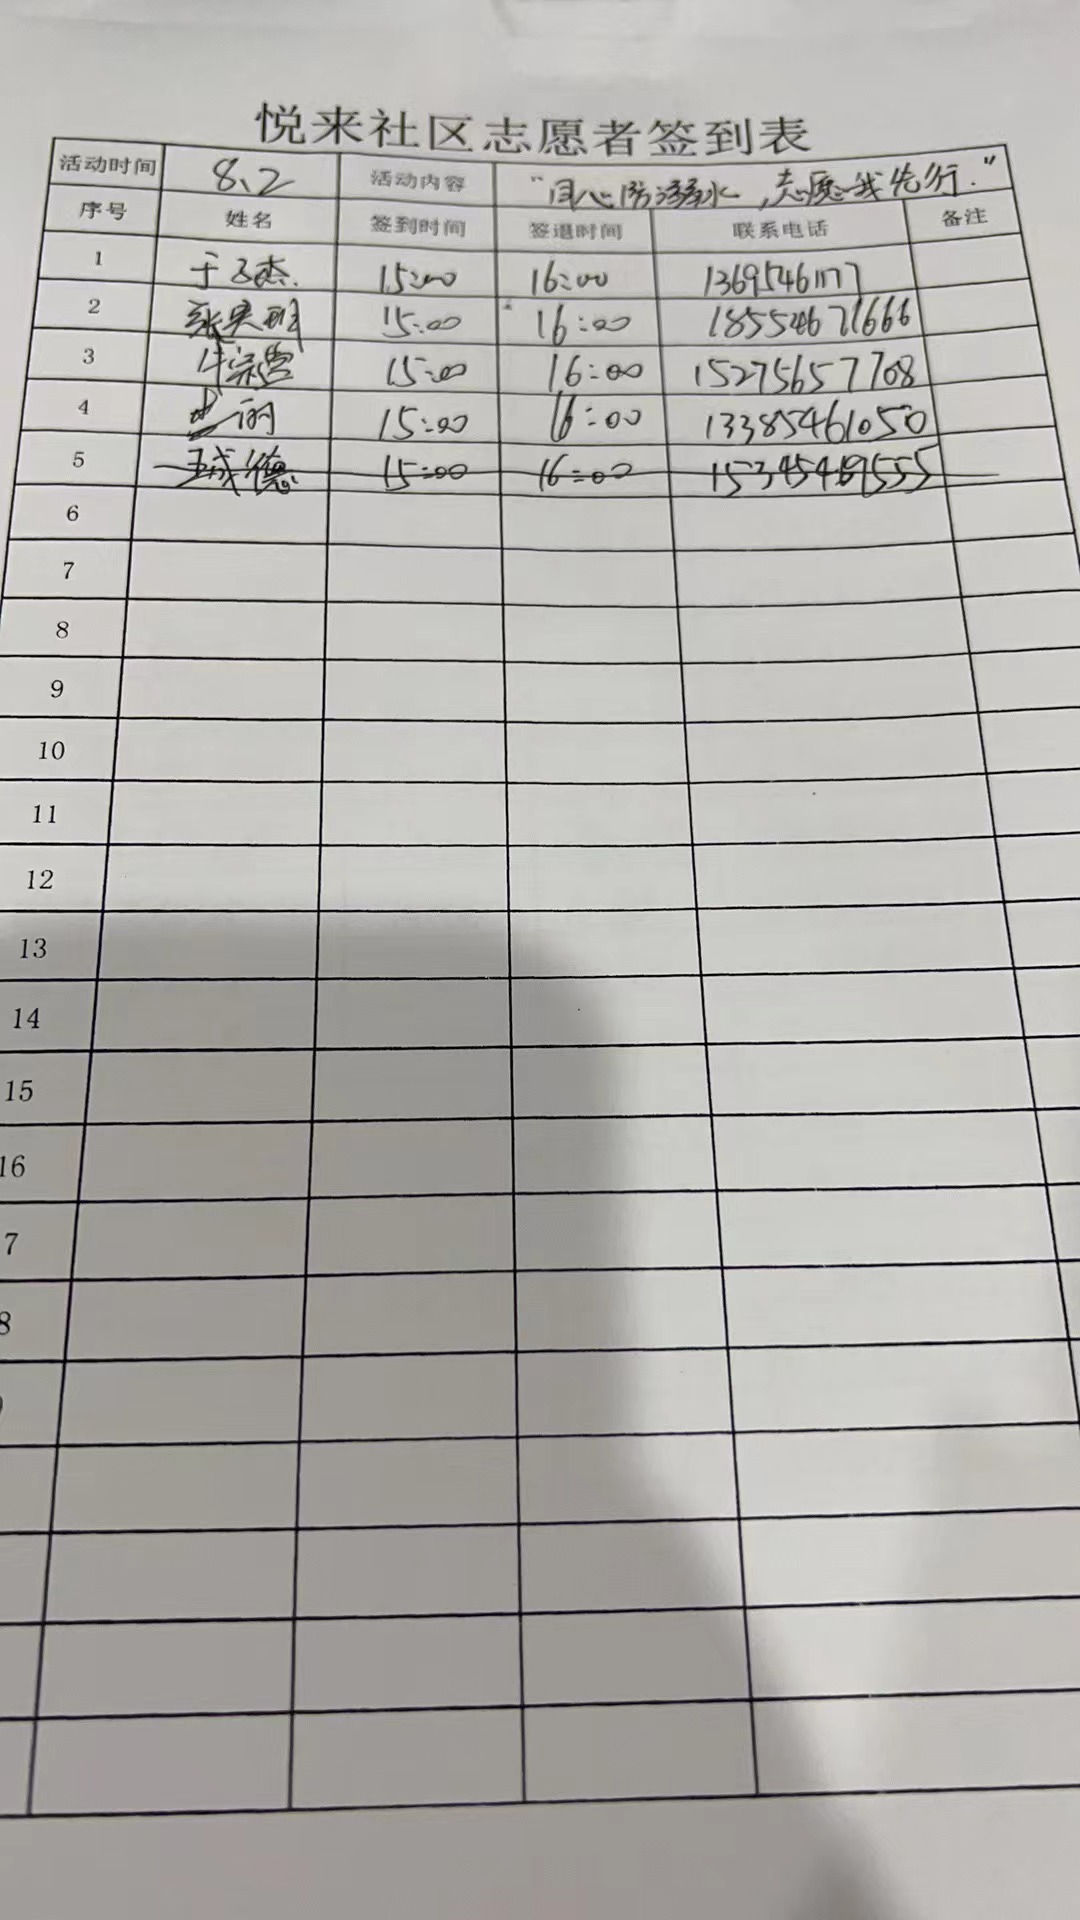 悦来社区志愿者签到表
活动时间 8.2 活动内容 "同心防溺水,志愿我先行."
序号 姓名 签到时间 签退时间 联系电话 备注
1 于子杰 15:00 16:00
2 15:00 16:00 18554671666
3 15:00 16:00 15275657708
4 15:00 16:00 13385461050
5 德 15:00 16:00
6
7
8
9
10
11
12
13
14
15
16
7
8